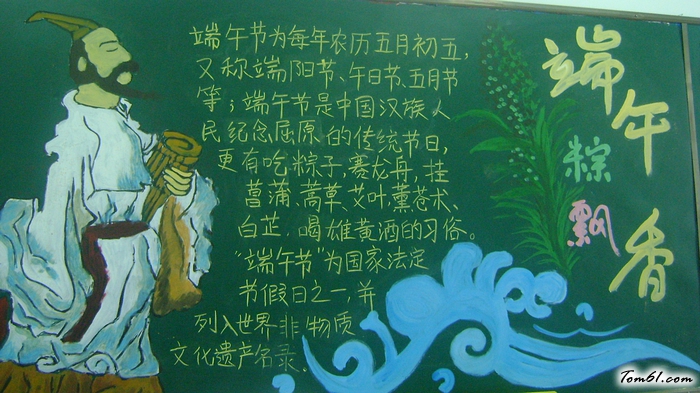 端午节为每年农历五月初五,
又称端阳节、午日节、五月节
等;端午节是中国汉族人
民纪念屈原的传统节日,
更有吃粽子,赛龙舟,挂
菖蒲、蒿草、艾叶,薰苍术、
白芷,喝雄黄酒的习俗。
"端午节"为国家法定
节假日之一,并
列入世界非物质
文化遗产名录.
端午
粽
飘
香
Tom61.com